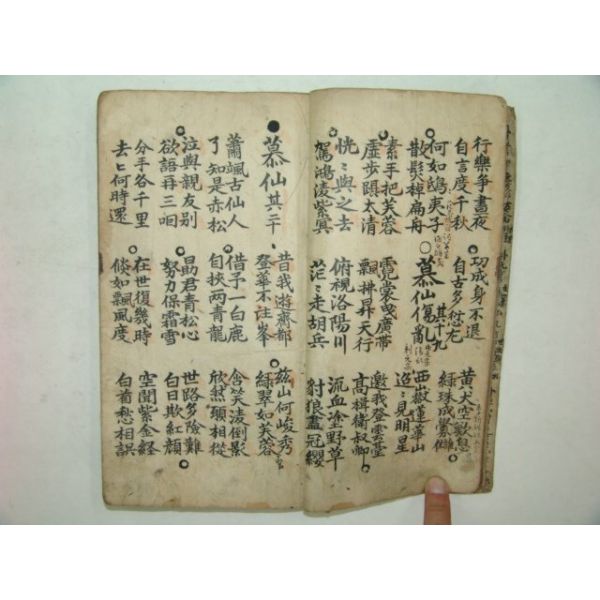 行樂爭晝夜
自言度千秋
功成身不退
自古多愆尤
黄犬空歎息
綠珠成釁讎
何如鴟夷子
散髮棹扁舟
慕仙傷亂
其十九
西嶽蓮華山
迢〻見明星
素手把芙蓉
虛步躡太清
霓裳曳廣帶
飄拂昇天行
邀我登雲臺
高揖衛叔卿
恍〻與之去
駕鴻凌紫冥
俯視洛陽川
茫〻走胡兵
流血塗野草
豺狼盡冠纓
慕仙其二十
昔我遊齊都
登華不注峯
茲山何峻秀
綠翠如芙蓉
蕭颯古仙人
了知是赤松
借予一白鹿
自挾兩青龍
含笑凌倒影
欣然願相從
泣與親友别
欲語再三咽
勗君青松心
努力保霜雪
世路多險難
白日欺紅顔
分手各千里
去〻何時還
在世復幾時
倏如飄風度
空聞紫金經
白首愁相誤